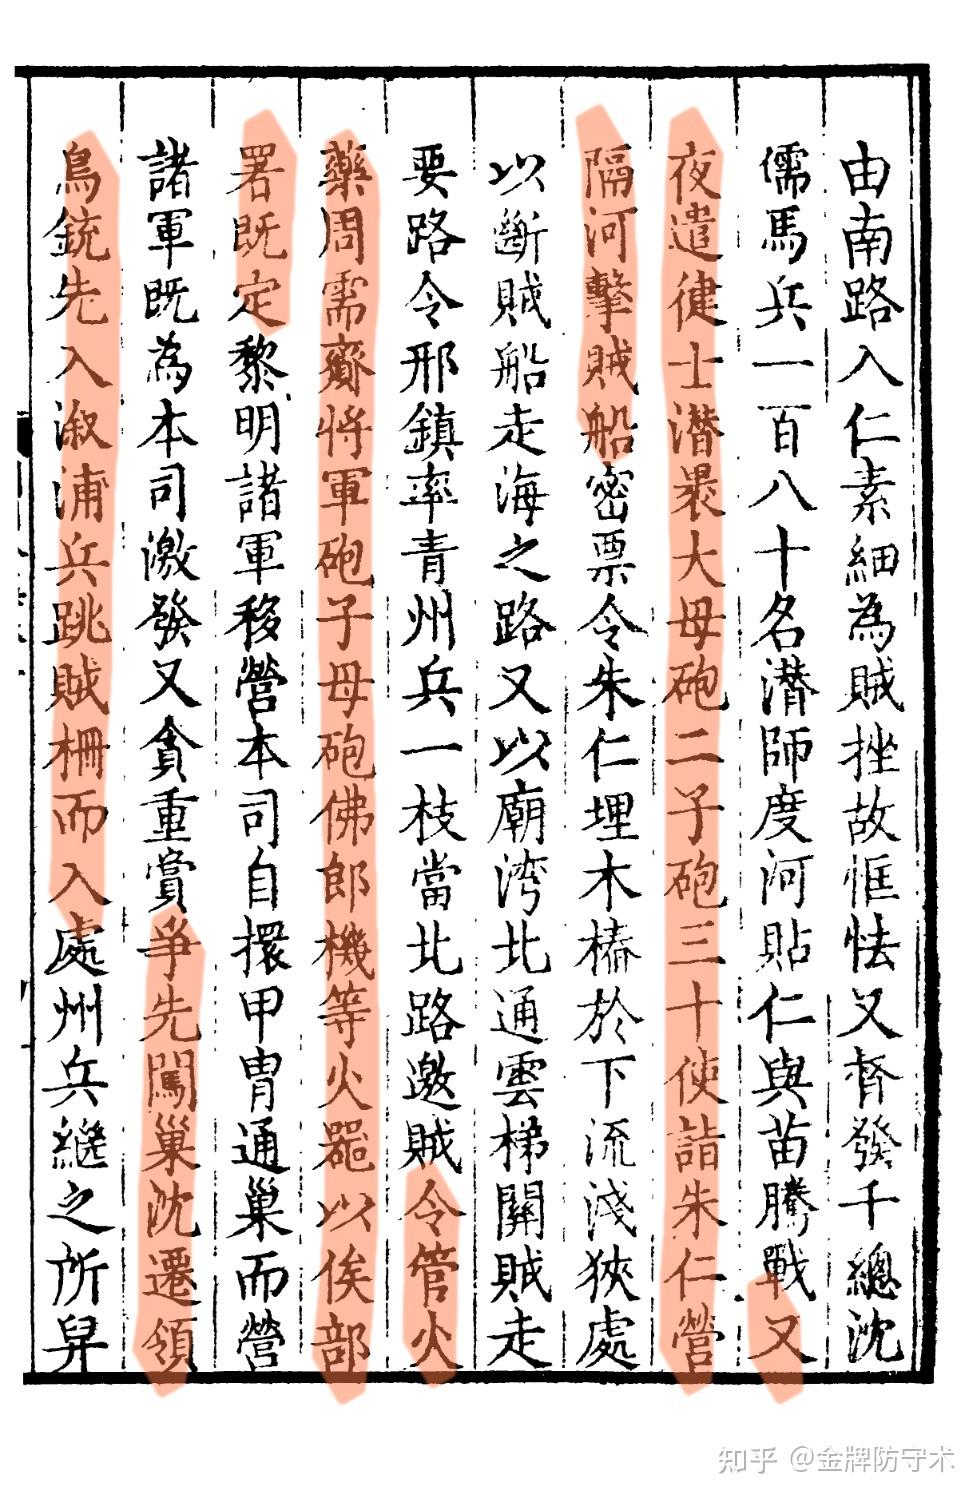 由南路入仁素細為賊挫故恇怯又督發千總沈
儒馬兵一百八十名潛師度河貼仁與苗騰戰又
夜遣健士潛褁大母砲二子砲三十使詣朱仁營
隔河擊賊船密票令朱仁埋木樁於下流淺狹處
以斷賊船走海之路又以廟湾北通雲梯關賊走
要路令邢鎮率青州兵一枝當北路邀賊令管火
藥周需齎將軍砲子母砲佛郎機等火器以俟部
署既定黎明諸軍移營本司自擐甲冑通巢而營
諸軍既為本司激發又貪重賞爭先闖巢沈遷領
鳥銃先入淑浦兵跳賊柵而入處州兵繼之所舁
知乎 @金牌防守术